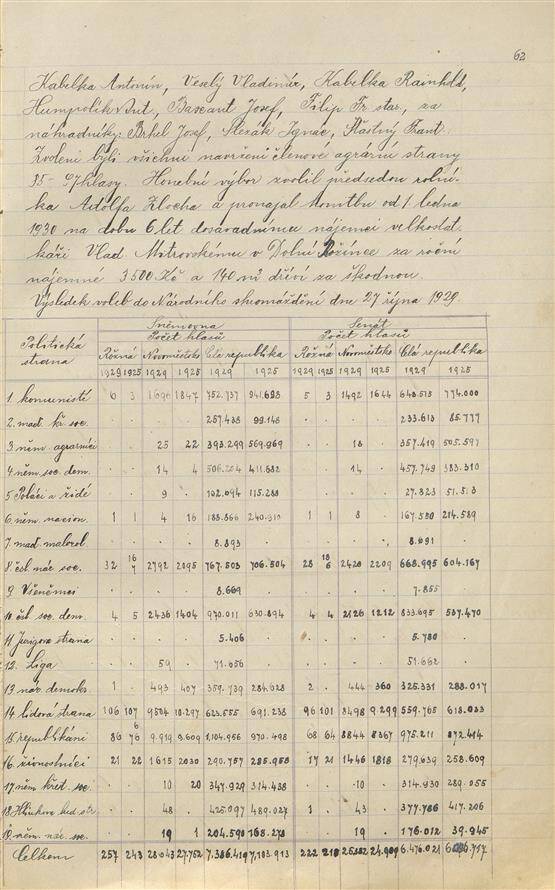 62
Kabelka Antonín, Veselý Vladimír, Kabelka Rainhold,
Humpolík Ant., Bassant Josef, Filip Fr. star., za
náhradníky: Brkel Josef, Slezák Ignác, Šťastný Frant.
Zvoleni byli všichni navržení členové agrární strany
35 - 97 hlasy. Honební výbor zvolil předsedou rolní-
ka Adolfa Zlocha a pronajal honitbu od 1 ledna
1930 na dobu 6 let dosavadnímu nájemci velkostat
káři Vlad Mitrovskému v Dolní Rožínce za roční
nájemné 3500 Kč a 140 m² dříví za škodnou.
Výsledek voleb do Národního shromáždění dne 27 října 1929.
Politická strana Sněmovna Počet hlasů Senát Počet hlasů
Rožná Novoměstsko Celá republika Rožná Novoměstsko Celá republika
1929 1925 1929 1925 1929 1925 1929 1925 1929 1925 1929 1925
1. komunisté 6 3 1696 1847 752.737 941.693 5 3 1492 1644 643.573 774.000
2. maď. kř. soc. . . . . 257.438 99.148 . . . . 233.613 85.777
3. něm. agrárníci . . 25 22 393.299 569.969 . . 18 . 357.419 505.597
4. něm. soc. dem. . . 14 4 506.204 411.682 . . 14 . 457.749 383.310
5. Poláci a židé . . 9 . 102.094 115.288 . . . . 27.823 51.513
6. něm. nacion. 1 1 4 16 188.866 240.910 1 1 8 . 167.530 214.589
7. maď. malorol. . . . . 8.893 . . . . . 8.691 .
8. čsl. nár. soc. 32 16 7 2792 2095 767.503 706.504 28 18 6 2420 2209 668.995 604.167
9. Všeněmci . . . . 8.669 . . . . . 7.855 .
10. čsl. soc. dem. 4 5 2436 1404 970.011 630.894 4 4 2126 1212 833.695 537.470
11. Jurigova strana . . . . 5.406 . . . . . 5.780 .
12. Liga . . 59 . 71.656 . . . . . 51.662 .
13. nár. demokr. 1 . 493 407 359.739 284.628 2 . 444 360 325.331 288.017
14. lidová strana 106 107 9504 10.297 623.655 691.238 96 101 8498 9.299 559.765 618.033
15. republikáni 86 6 76 9.919 9.609 1,104.956 970.498 68 64 8844 8367 975.211 872.414
16. živnostníci 21 28 1615 2030 290.757 285.958 17 21 1446 1818 279.639 258.609
17. něm. křest. soc. . . 10 20 347.929 314.438 . . 10 . 314.930 289.055
18. Hlinkova lud. str. . . 48 . 425.097 489.027 1 . 43 . 377.786 417.206
19. něm. nác. soc. . . 19 1 204.590 168.278 . . 19 . 176.012 39.945
Celkem 257 243 28.043 27.752 7,386.419 7,103.913 222 218 24.909 6.476.021